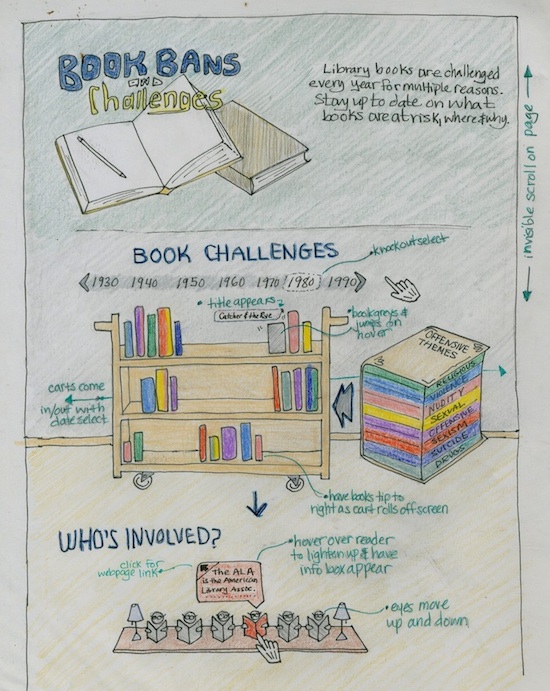 BOOK BANS
AND
Challenges
Library books are challenged
every year for multiple reasons.
Stay up to date on what
books are at risk, where & why.
invisible scroll on page
BOOK CHALLENGES
•knockout select
1930 1940 1950 1960 1970 1980 1990
• title appears
Catcher & the Rye
•book greys &
jumps on
hover
OFFENSIVE
THEMES
RELIGIOUS
VIOLENCE
NUDITY
SEXUAL
OFFENSIVE
SEXISM
SUICIDE
DRUGS
carts come
in/out with
date select
•have books tip to
right as cart rolls off screen
WHO'S INVOLVED?
•hover over reader
to lighten up & have
info box appear
click for
webpage link•
The ALA
is the American
Library Assoc.
•eyes move
up and down